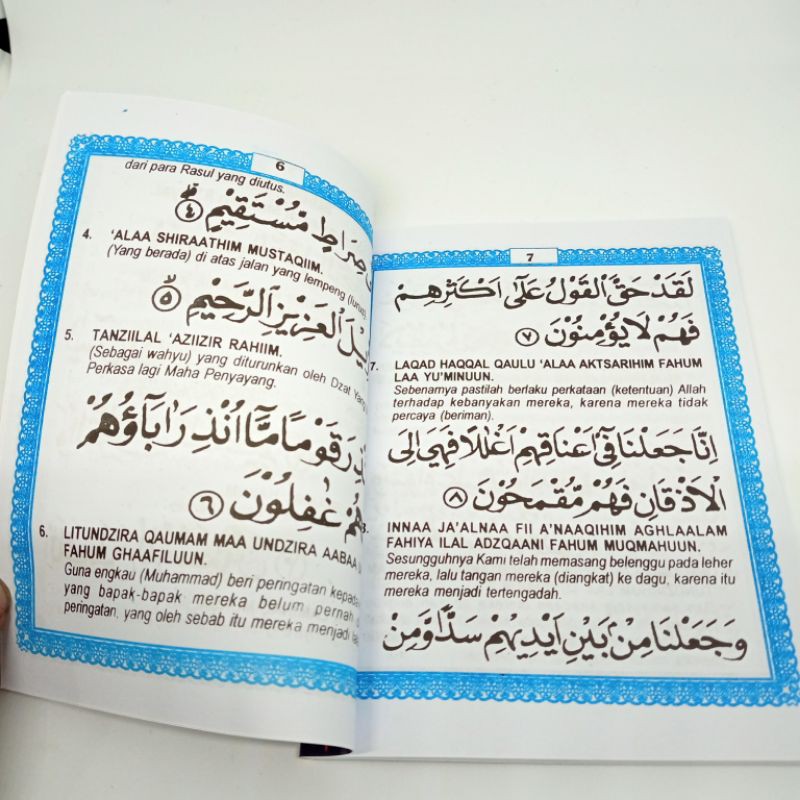 6
dari para Rasul yang diutus.
صِرَاطٍ مُّسْتَقِيْمٍ ۙ ٤
4. ‘ALAA SHIRAATHIM MUSTAQIIM.
(Yang berada) di atas jalan yang lempeng (lurus).
الْعَزِيْزِ الرَّحِيْمِ ۙ ٥
5. TANZIILAL ‘AZIIZIR RAHIIM.
(Sebagai wahyu) yang diturunkan oleh Dzat
Perkasa lagi Maha Penyayang.
قَوْمًا مَّآ اُنْذِرَ اٰبَآؤُهُمْ
غٰفِلُوْنَ ٦
6. LITUNDZIRA QAUMAM MAA UNDZIRA
FAHUM GHAAFILUUN.
Guna engkau (Muhammad) beri peringatan
yang bapak-bapak mereka belum pernah
peringatan, yang oleh sebab itu mereka menjadi
7
لَقَدْ حَقَّ الْقَوْلُ عَلٰٓى اَكْثَرِهِمْ
فَهُمْ لَا يُؤْمِنُوْنَ ٧
7. LAQAD HAQQAL QAULU ‘ALAA AKTSARIHIM FAHUM
LAA YU’MINUUN.
Sebenarnya pastilah berlaku perkataan (ketentuan) Allah
terhadap kebanyakan mereka, karena mereka tidak
percaya (beriman).
اِنَّا جَعَلْنَا فِيْٓ اَعْنَاقِهِمْ اَغْلٰلًا فَهِيَ اِلَى
الْاَذْقَانِ فَهُمْ مُّقْمَحُوْنَ ٨
INNAA JA’ALNAA FII A’NAAQIHIM AGHLAALAM
FAHIYA ILAL ADZQAANI FAHUM MUQMAHUUN.
Sesungguhnya Kami telah memasang belenggu pada leher
mereka, lalu tangan mereka (diangkat) ke dagu, karena itu
mereka menjadi tertengadah.
وَجَعَلْنَا مِنْۢ بَيْنِ اَيْدِيْهِمْ سَدًّا وَّمِنْ